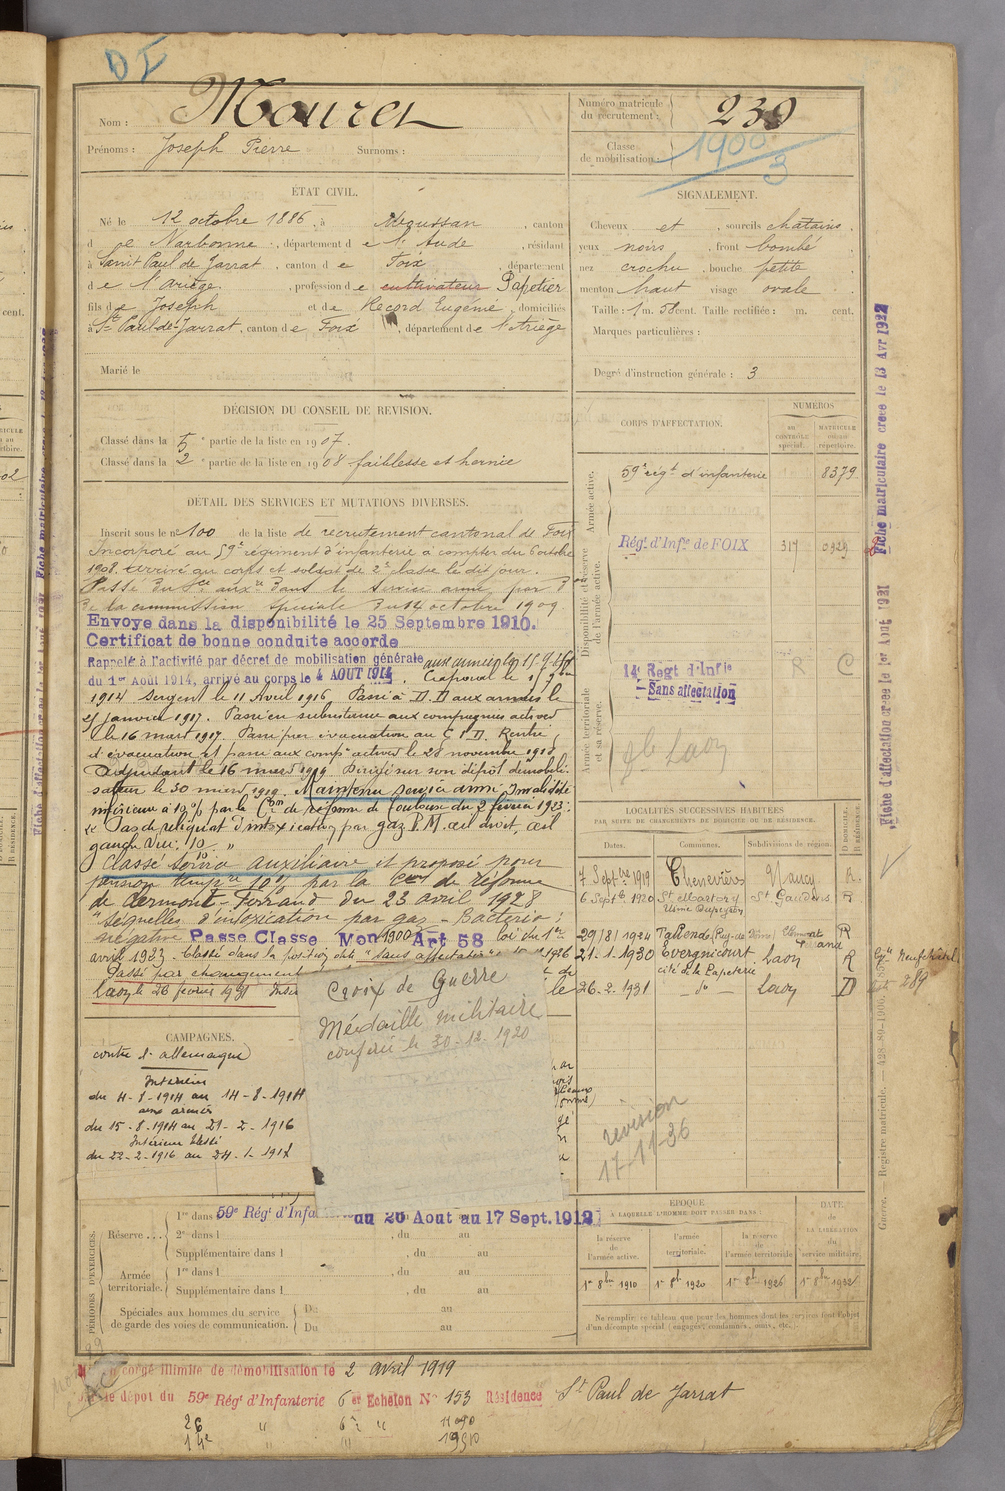 Nom : Mouret
Prénoms : Joseph Pierre Surnoms :
Numéro matricule du recrutement : 239
Classe de mobilisation : 1900/3
ÉTAT CIVIL.
Né le 12 octobre 1886, à canton
d de Narbonne, département de l'Aude, résidant
à Saint Paul de Jarrat, canton de Foix, département
de l'Ariège, profession de cultivateur Papetier
fils de Joseph et de Record Eugénie, domiciliés
à St Paul-de-Jarrat, canton de Foix, département de l'Ariège
Marié le
SIGNALEMENT.
Cheveux et sourcils chatains,
yeux noirs, front bombé
nez crochu, bouche petite,
menton haut visage ovale
Taille : 1 m. 58 cent. Taille rectifiée : m. cent.
Marques particulières :
Degré d'instruction générale : 3
DÉCISION DU CONSEIL DE REVISION.
Classé dans la 5e partie de la liste en 1907.
Classé dans la 2e partie de la liste en 1908 faiblesse et hernie
DÉTAIL DES SERVICES ET MUTATIONS DIVERSES.
Inscrit sous le n° 100 de la liste de recrutement cantonal de Foix
Incorporé au 59e régiment d'infanterie à compter du 6 octobre
1908. Arrivé au corps et soldat de 2e classe le dit jour.
Passé du sce auxre dans le service armé par
de la commission spéciale du 14 octobre 1909
Envoyé dans la disponibilité le 25 Septembre 1910.
Certificat de bonne conduite accordé
Rappelé à l'activité par décret de mobilisation générale aux armées le 15-8-1914
du 1er Août 1914, arrivé au corps le 4 AOUT 1914. Caporal le
1914 Sergent le 11 Avril 1916 Passé à D.D aux armées le
25 janvier 1917. Passé en subsistance aux compagnies actives
le 16 mars 1917. Passé par évacuation au Rentré
d'évacuation et passé aux compies actives le 28 novembre 1918
Adjudant le 16 mars 1919 Dirigé sur son dépôt démobili-
sateur le 30 mars 1919. Maintenu service armé Invalidité
inférieure à 10% par la Con de réforme de Toulouse du 2 février 1923.
Pas de reliquat d'intoxication par gaz P.M. œil droit, œil
gauche
Classé service auxiliaire et proposé pour
pension tempre 10% par la Con de réforme
de Clermont-Ferrand du 23 avril 1928
"séquelles d'intoxication par gaz - Bacterio :
négative Passé Classe Mon 1900 Art 58 loi du 1er
avril 1923. Classé dans la position dite "sans affectation"
Passé par changement
Laon le 26 février 1931
Croix de Guerre
Médaille militaire
conférée le 30-12-1920
CORPS D'AFFECTATION.
NUMÉROS
AU CONTRÔLE spécial.
MATRICULE ou au répertoire.
Armée active.
59e régt d'infanterie 8379
Disponibilité et réserve de l'armée active.
Régt d'Infie de FOIX 317 0929
R C
Armée territoriale et sa réserve.
14e Régt d'Infie
Sans affectation
Laon
LOCALITÉS SUCCESSIVES HABITÉES
PAR SUITE DE CHANGEMENTS DE DOMICILE OU DE RÉSIDENCE.
Dates. Communes. Subdivisions de région. D. DOMICILE. R RÉSIDENCE.
7 Septbre 1919 Chenevières Nancy R.
6 Septbre 1920 St Martory St Gaudens R
Usine Dupeyron
29/8/1924 Tallende (Puy-de-Dôme) Clermont Ferrand R
21.1.1930 Evergnicourt Laon R
cité de la Papeterie
26-2-1931 - do - Laon D
revision
17-11-36
CAMPAGNES.
contre l'allemagne
Intérieur
du 4-8-1914 au 14-8-1914
aux armées
du 15-8-1914 au 21-2-1916
Intérieur blessé
du 22-2-1916 au 24-1-1917
PÉRIODES D'EXERCICES.
Réserve... 1re dans 59e Régt d'Infanterie du 26 Aout au 17 Sept. 1912
2e dans l , du au
Supplémentaire dans l , du au
Armée territoriale. 1re dans l , du au
Supplémentaire dans l , du au
Spéciales aux hommes du service de garde des voies de communication. Du au
Du au
ÉPOQUE
À LAQUELLE L'HOMME DOIT PASSER DANS :
la réserve de l'armée active. l'armée territoriale. la réserve de l'armée territoriale
DATE de LA LIBÉRATION du service militaire.
1er 8bre 1910 1er 8bre 1920 1er 8bre 1926 1er 8bre 1932
Ne remplir ce tableau que pour les hommes dont les services font l'objet
d'un décompte spécial (engagés, condamnés, omis, etc.).
congé illimité de démobilisation le 2 avril 1919
le dépôt du 59e Régt d'Infanterie 6e Echelon N° 153 Résidence St Paul de Jarrat
Fiche matriculaire créée le 13 Avr 1932
Fiche d'affectation créée le 1er Aout 1931
Guerre. — Registre matricule. — 428-89-1906.